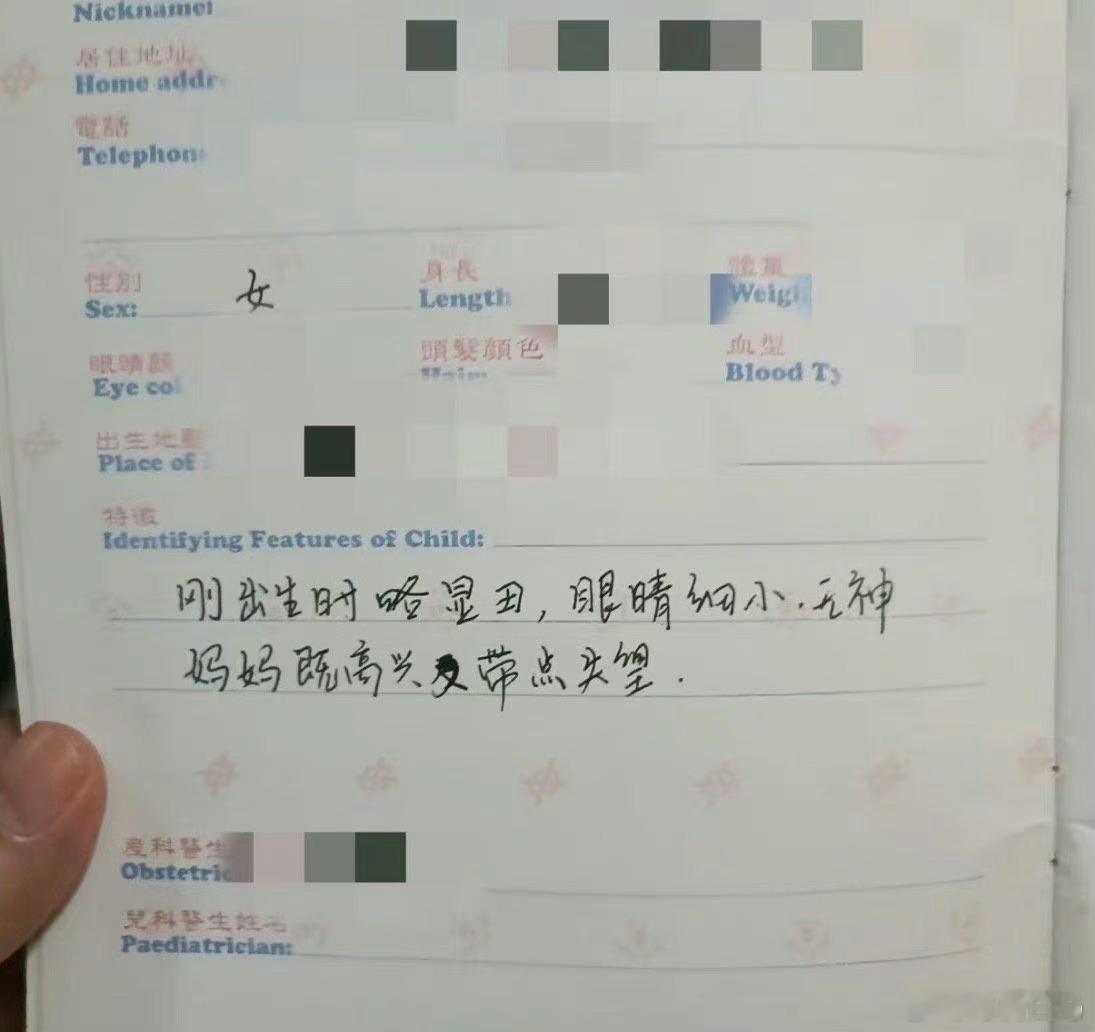 Nickname:
居住地址
Home addr
電話
Telephon
性別 身長 體重
Sex: 女 Length Weigh
眼睛顏 頭髮顏色 血型
Eye co Blood Ty
出生地
Place of
特徵
Identifying Features of Child:
刚出生时略显田,眼睛细小.无神
妈妈既高兴又带点失望.
產科醫生
Obstetric
兒科醫生姓名
Paediatrician: